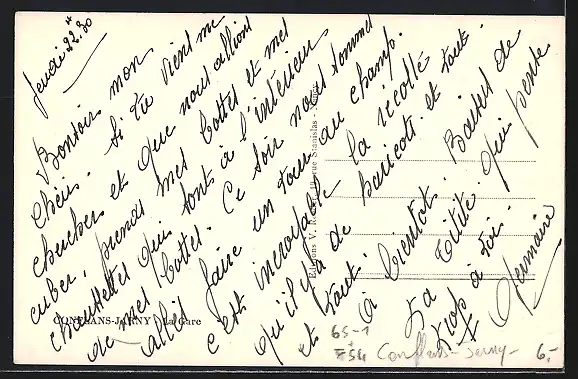 Jeudi 22.30
Bonsoir mon
chéri. Si tu viens me
chercher et que nous allions
cuber, prends mes bottes et mes
chaussettes qui sont à l'intérieur
de mes bottes. Ce soir nous sommes
allés faire un tour au champ.
c'est incroyable la récolte
qu'il y a de haricots et tout
et tout.
à bientôt. Baisers de
ta Titite qui pense
trop à toi.
Germaine
Editions V. Stanislas - Nancy
CONFLANS-JARNY - La Gare
65-1
F54 Conflans-Jarny- 6.-